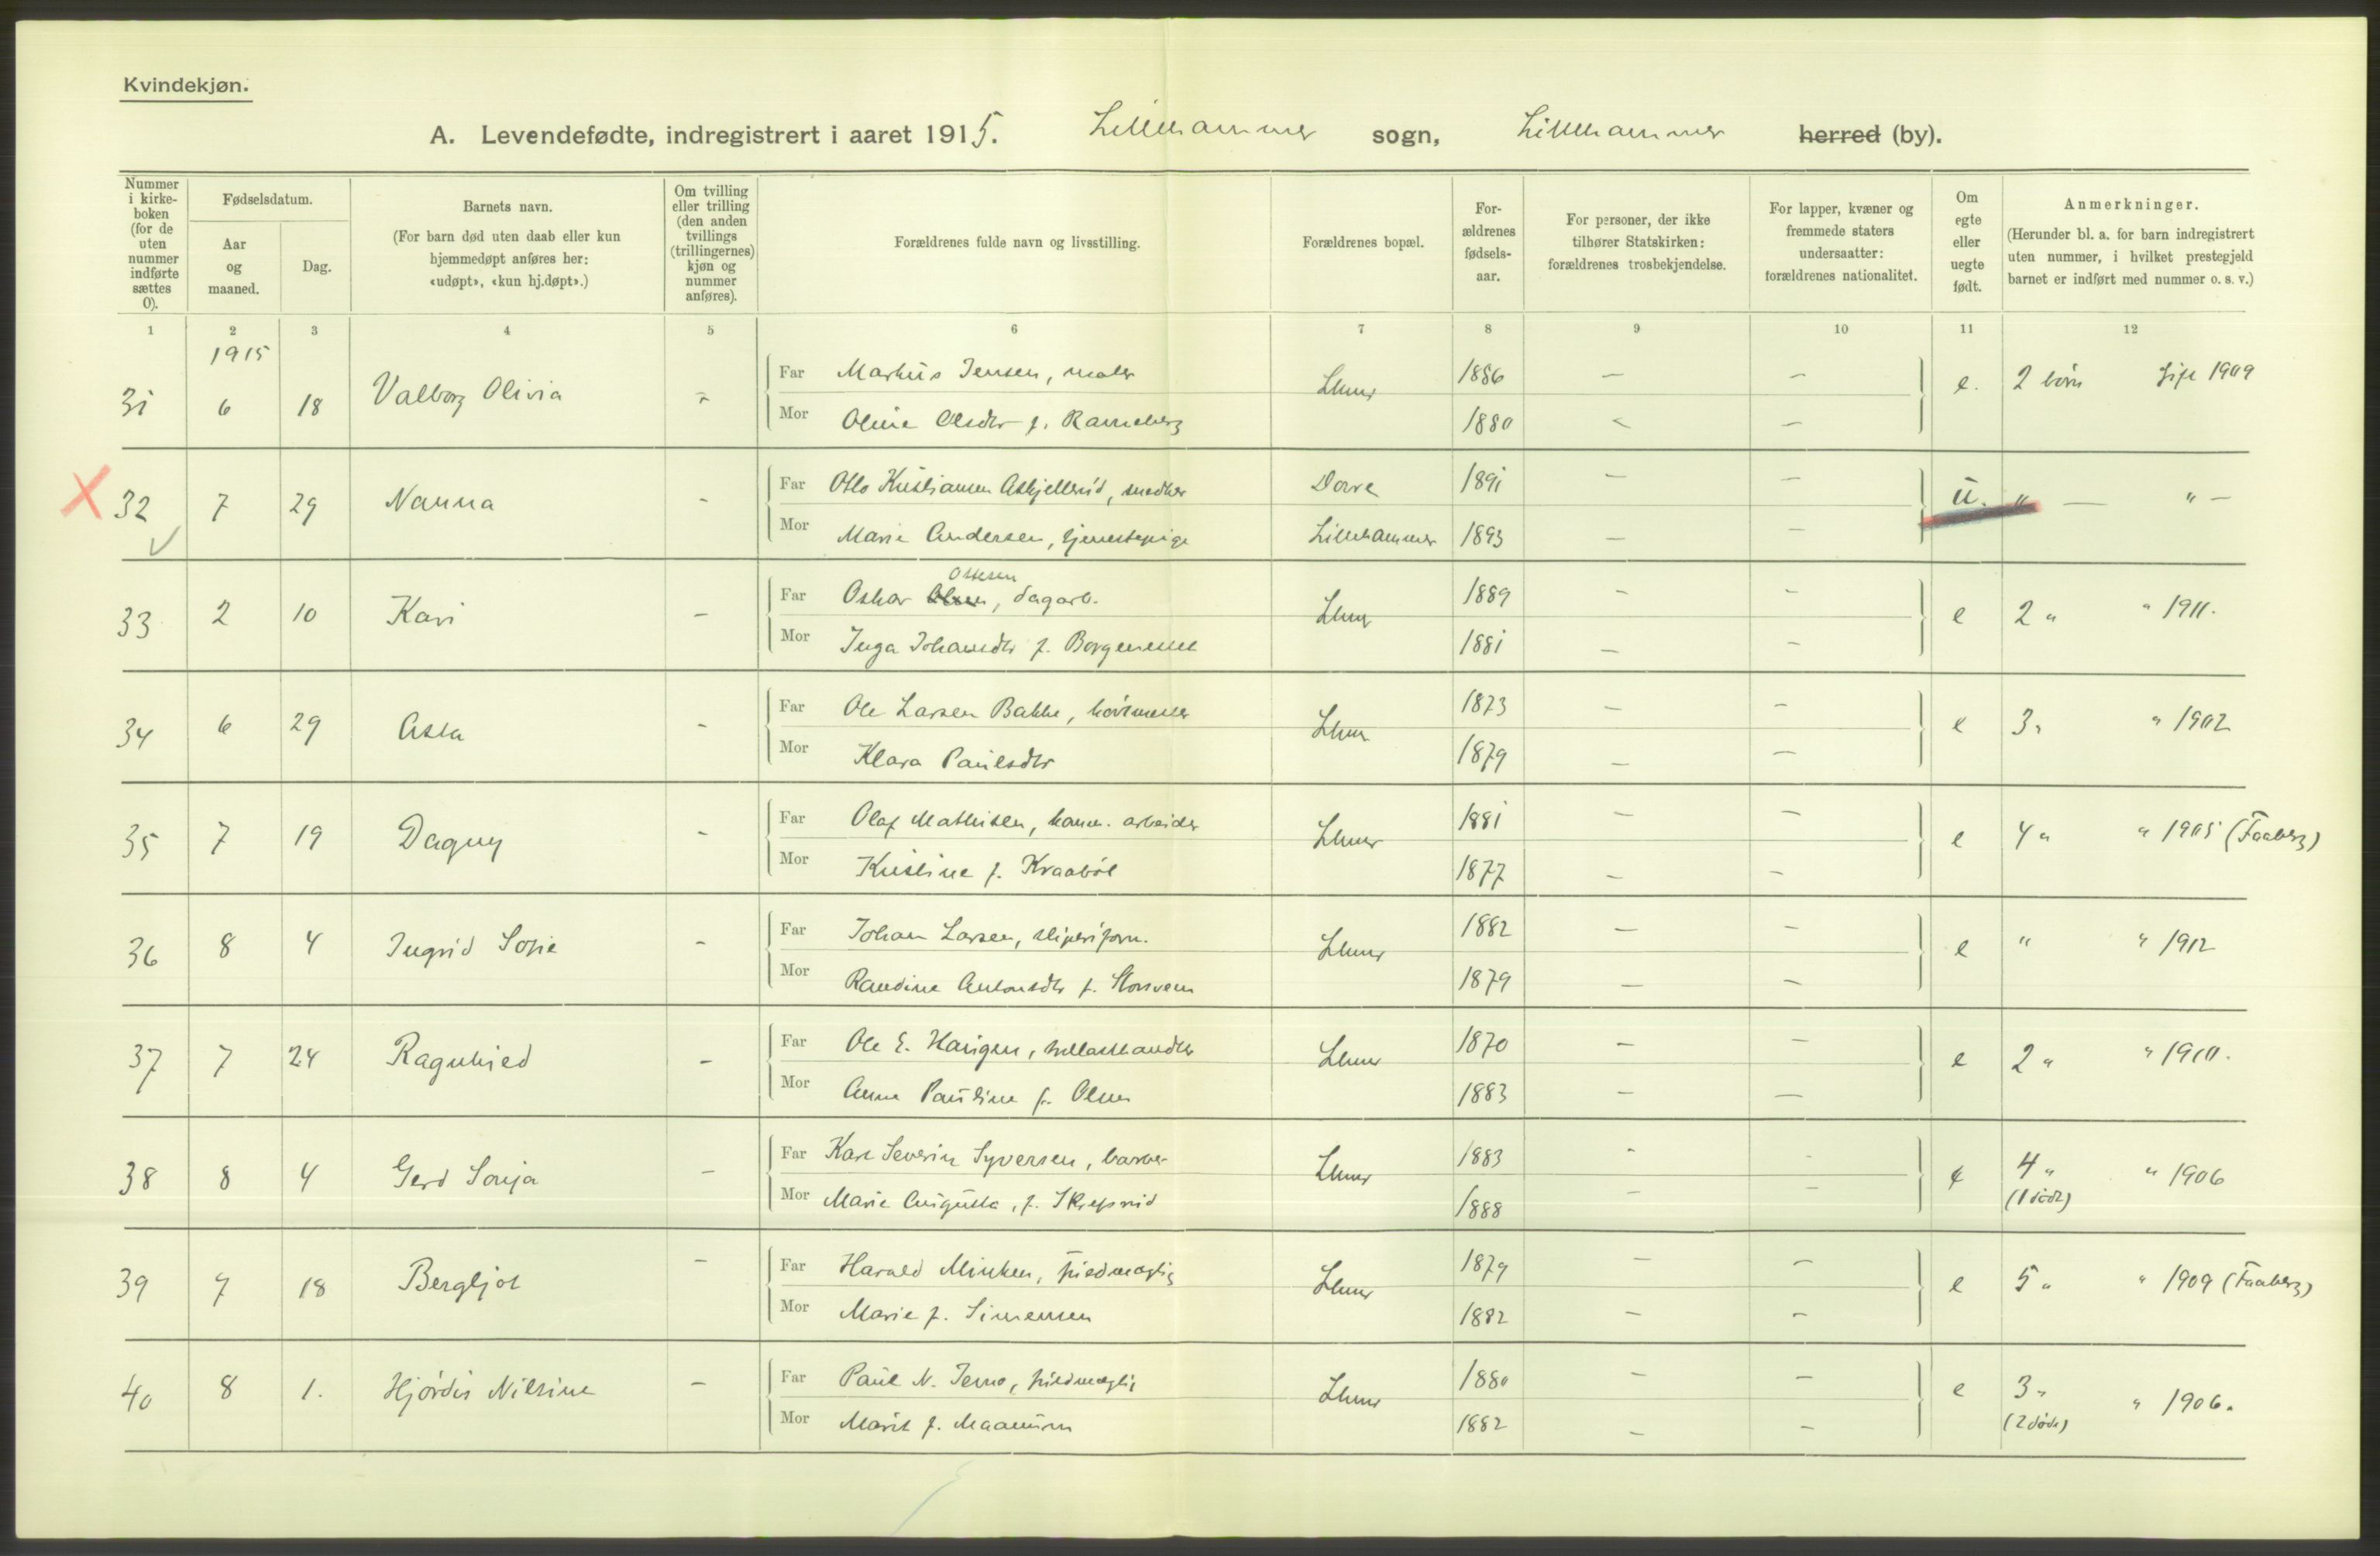 Kvindekjøn.
A. Levendefødte, indregistrert i aaret 1915. Lillehammer sogn, Lillehammer herred (by).
Nummer i kirke-boken (for de uten nummer indførte sættes 0).
Fødselsdatum.
Aar og maaned.
Dag.
Barnets navn.
(For barn død uten daab eller kun hjemmedøpt anføres her: «udøpt», «kun hj.døpt».)
Om tvilling eller trilling (den anden tvillings (trillingernes) kjøn og nummer anføres).
Forældrenes fulde navn og livsstilling.
Forældrenes bopæl.
For-ældrenes fødsels-aar.
For personer, der ikke tilhører Statskirken: forældrenes trosbekjendelse.
For lapper, kvæner og fremmede staters undersaatter: forældrenes nationalitet.
Om egte eller uegte født.
Anmerkninger.
(Herunder bl. a. for barn indregistrert uten nummer, i hvilket prestegjeld barnet er indført med nummer o. s. v.)
1 2 3 4 5 6 7 8 9 10 11 12
1915
31 6 18 Valborg Olivia - Far Markus Jensen, maler Lhmr 1886 — — e. 2 børn Gift 1909
Mor Oline Olsdtr f. Ranneberg 1880 — —
32 7 29 Nanna - Far Otto Kristiansen Askjellerud, snedker Dovre 1891 — — u. " — " —
Mor Marie Andersen, tjenestepige Lillehammer 1893 — —
33 2 10 Kari - Far Oskar Olsen Ottesen, dagarb. Lhmr 1889 - - e 2 " " 1911.
Mor Inga Johansdtr f. Borgeneset 1881 — -
34 6 29 Asta - Far Ole Larsen Bakke, Lhmr 1873 — - e 3 " " 1902
Mor Klara Paulsdtr 1879 — —
35 7 19 Dagny - Far Olaf Mathisen, kom. arbeider Lhmr 1881 — — e 4 " " 1905 (Faaberg)
Mor Kristine f. Kraabøl 1877 — -
36 8 4 Ingrid Sofie - Far Johan Larsen, sliperiform. Lhmr 1882 — - e " " 1912
Mor Randine Antonsdtr f. Storsveen 1879 — —
37 7 24 Ragnhild - Far Ole E. Haugen, Lhmr 1870 — — e 2 " " 1910.
Mor Anne Pauline f. Olsen 1883 — —
38 8 4 Gerd Sonja - Far Karl Severin Syversen, barber Lhmr 1883 - - e 4 " (1 død) " 1906
Mor Marie Augusta, f. Skrepsrud 1888 — -
39 7 18 Bergljot - Far Harald Minken, fiedmægtig Lhmr 1879 — — e 5 " " 1909 (Faaberg)
Mor Marie f. Simensen 1882 — -
40 8 1. Hjørdis Nilsine - Far Paul N. Jemo, Lhmr 1880 — — e 3 " (2 døde) " 1906.
Mor Marit f. Maanum 1882 — —